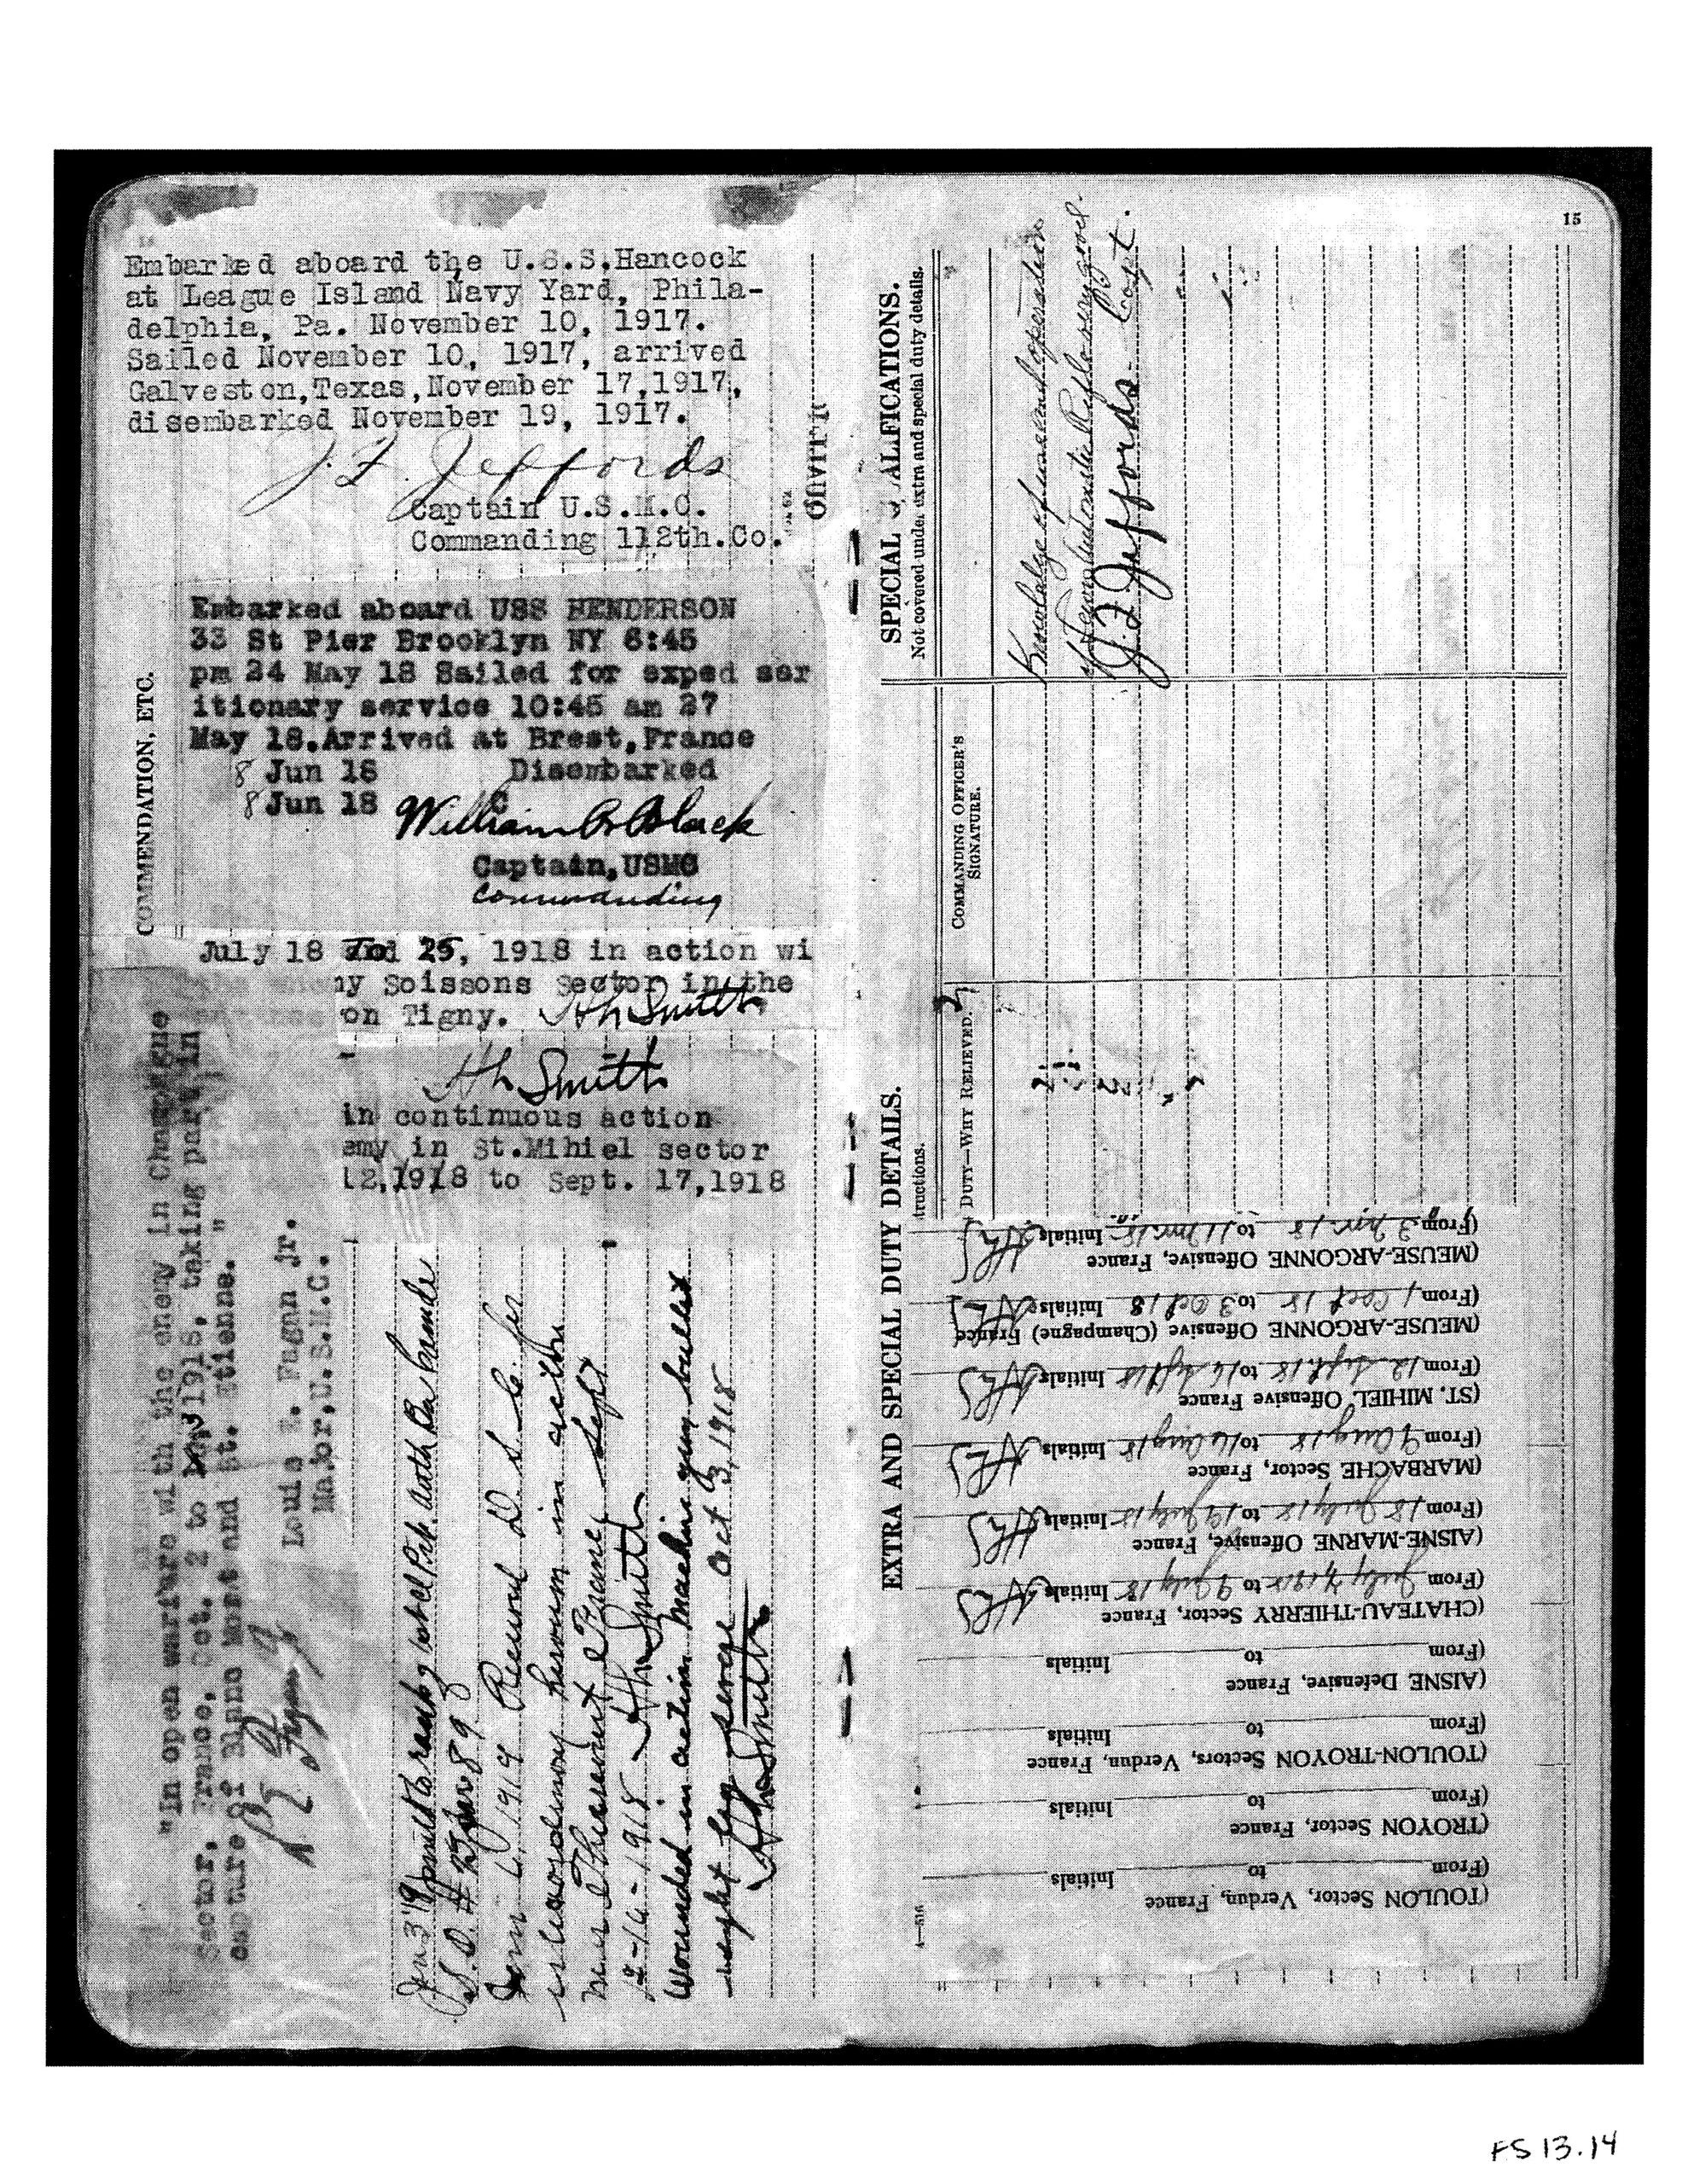 15
Embarked aboard the U.S.S.Hancock
at League Island Navy Yard, Phila-
delphia, Pa. November 10, 1917.
Sailed November 10, 1917, arrived
Galveston,Texas,November 17,1917,
disembarked November 19, 1917.
J. F. Jeffords
Captain U.S.M.C.
Commanding 112th.Co.
COMMENDATION, ETC.
Embarked aboard USS HENDERSON
33 St Pier Brooklyn NY 6:45
pm 24 May 18 Sailed for exped ser
itionary service 10:45 am 27
May 18.Arrived at Brest,France
8 Jun 18 Disembarked
8 Jun 18
William B Black
Captain,USMC
Commanding
July 18 25, 1918 in action wi
ny Soissons sector in the
on Tigny. Smith
Smith
in continuous action
emy in St.Mihiel sector
12,1918 to Sept. 17,1918
"In open warfare with the enemy in Champagne
Sector, France, Oct. 2 to 1918, taking part in
capture of Blanc Mont and St. Etienne. "
Louis E. Fagan jr.
Major,U.S.M.C.
S.O. #
1919 Received D. S. C. for
extraordinary heroism in action
near Thiaucourt France, Sept
1918 Smith
Wounded in action machine gun bullet
right leg severe Oct 3, 1918
Smith
SPECIAL QUALIFICATIONS.
Not covered under extra and special duty details.
Knowledge of and operation
of Automatic Rifle very good.
J. F. Jeffords Capt.
COMMANDING OFFICER'S
SIGNATURE.
EXTRA AND SPECIAL DUTY DETAILS.
tructions.
DUTY—WHY RELIEVED.
A—516
(TOULON Sector, Verdun, France
(From to Initials
(TROYON Sector, France
(From to Initials
(TOULON-TROYON Sectors, Verdun, France
(From to Initials
(AISNE Defensive, France
(From to Initials
(CHATEAU-THIERRY Sector, France
(From July 1918 to 9 July 18 Initials
(AISNE-MARNE Offensive, France
(From 18 July 18 to 19 July 18 Initials
(MARBACHE Sector, France
(From 9 Aug 18 to 16 Aug 18 Initials
(ST. MIHIEL Offensive France
(From 12 Sept 18 to 16 Sept 18 Initials
(MEUSE-ARGONNE Offensive (Champagne) France
(From 1 Oct 18 to 3 Oct 18 Initials
(MEUSE-ARGONNE Offensive, France
(From to 11 Nov. 18 Initials
FS 13.14